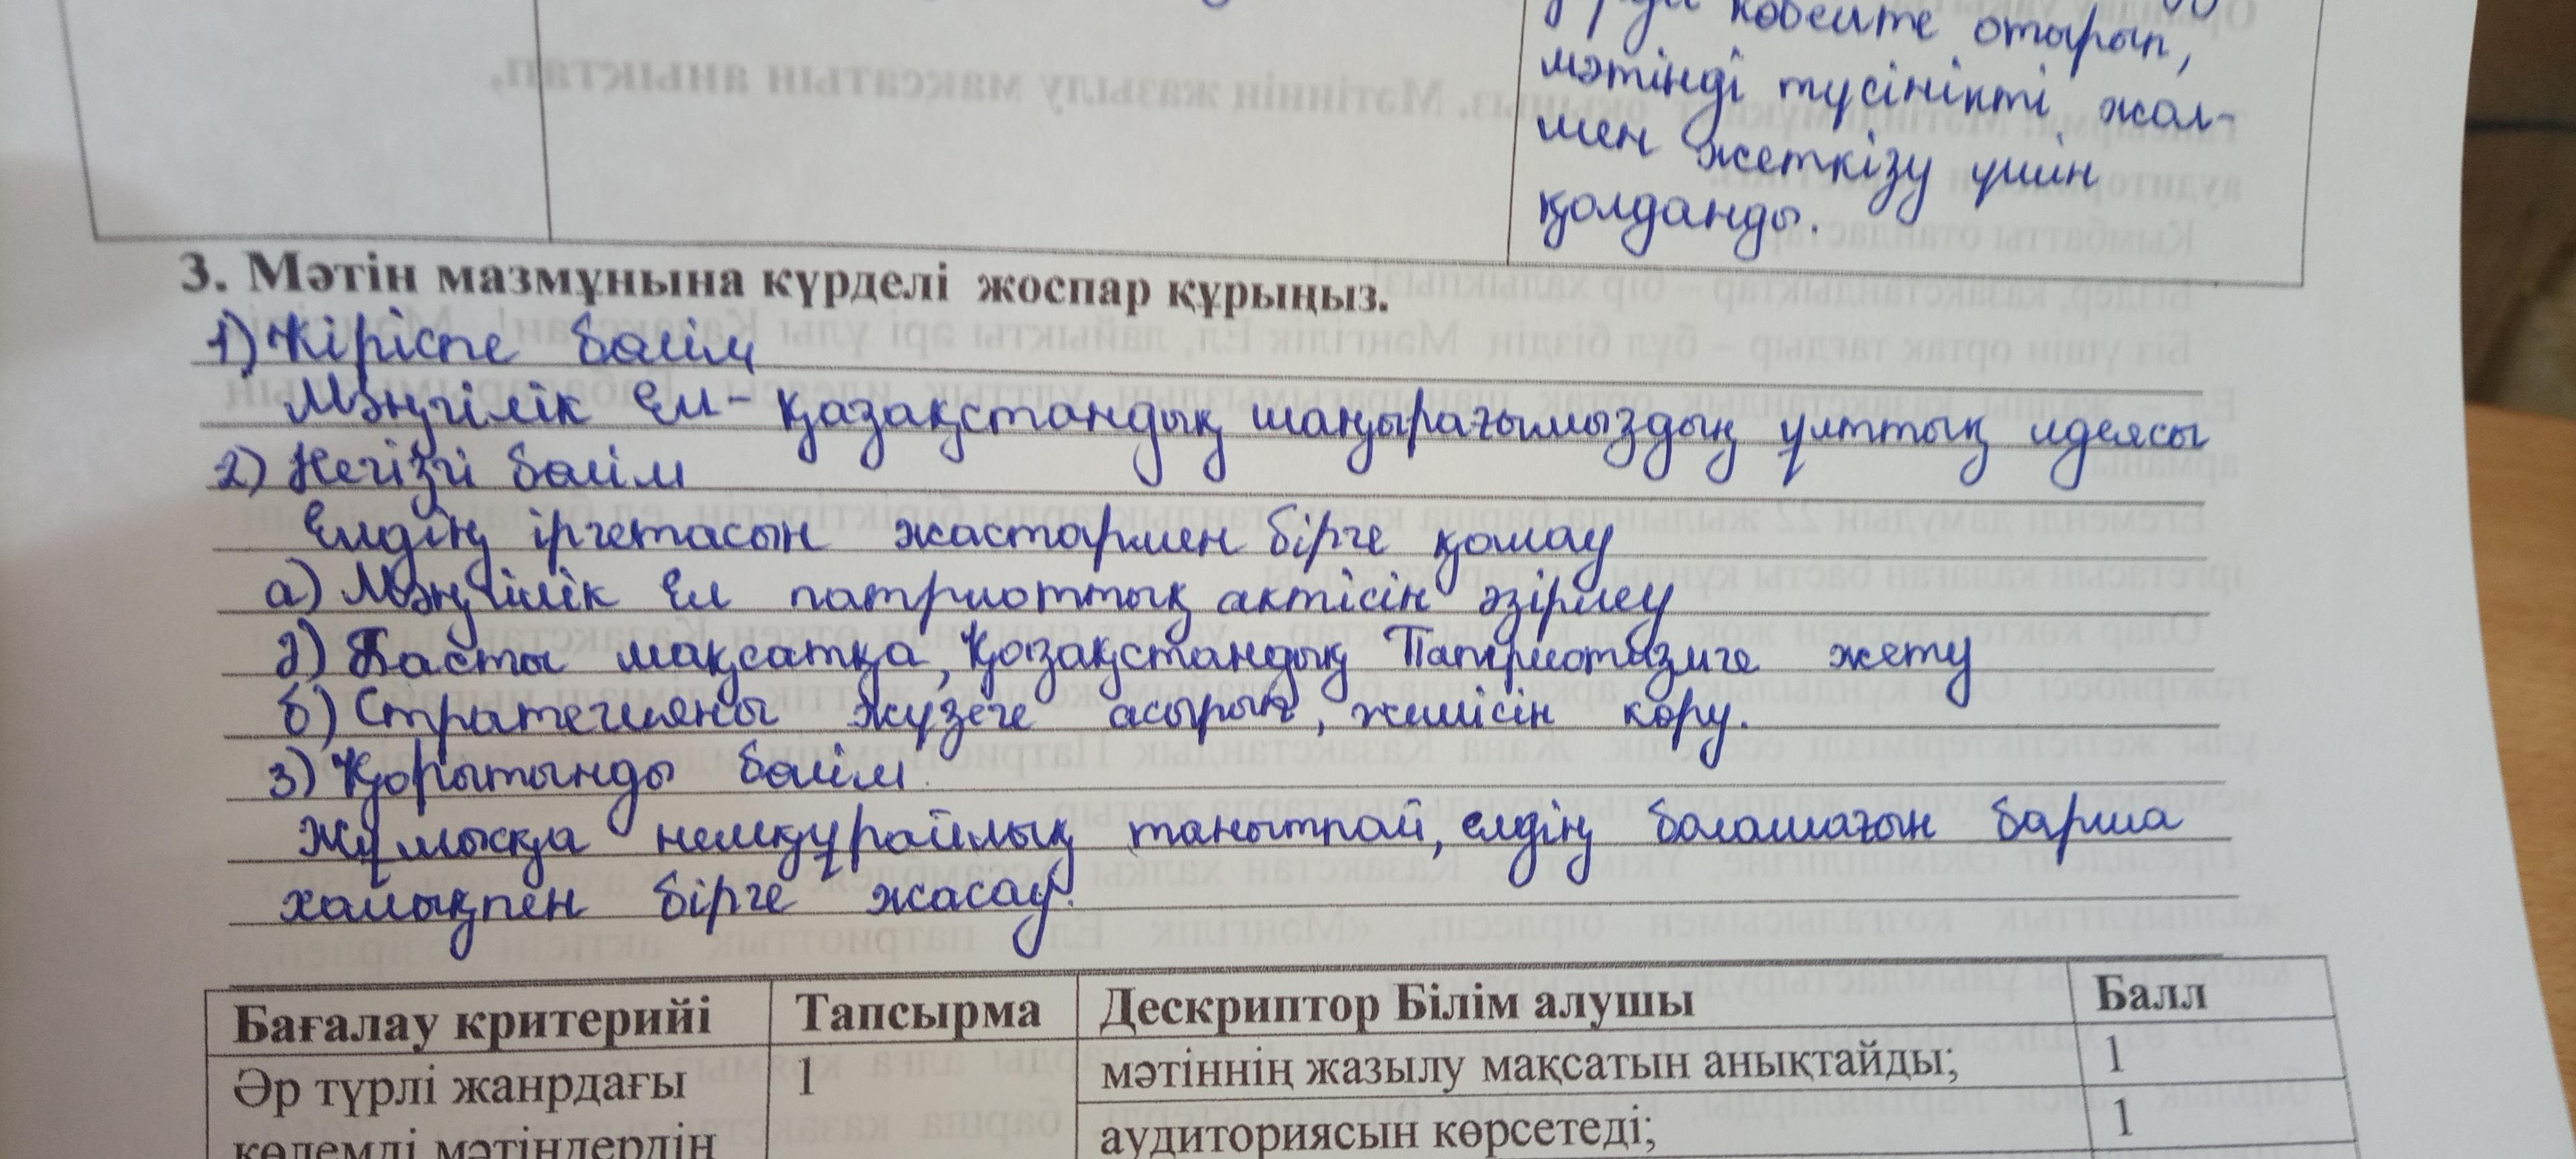 көбейте отырып,
мәтінді түсінікті жол-
мен жеткізу үшін
қолданды.
3. Мәтін мазмұнына күрделі жоспар құрыңыз.
1) Кіріспе бөлім
Мәңгілік Ел - қазақстандық шаңырағымыздың ұлттық идеясы
2) Негізгі бөлім
Елдің іргетасын жастармен бірге қалау
а) Мәңгілік Ел патриоттық актісін әзірлеу
ә) Басты мақсатқа, Қазақстандық Патриотизмге жету
б) Стратегияны жүзеге асырып, жемісін көру.
3) Қорытынды бөлім.
Жұмысқа немқұрайлық танытпай, елдің болашағын барша
халықпен бірге жасау.
Бағалау критерийі Тапсырма Дескриптор Білім алушы Балл
Әр түрлі жанрдағы 1 мәтіннің жазылу мақсатын анықтайды; 1
көлемді мәтіндердің аудиториясын көрсетеді; 1